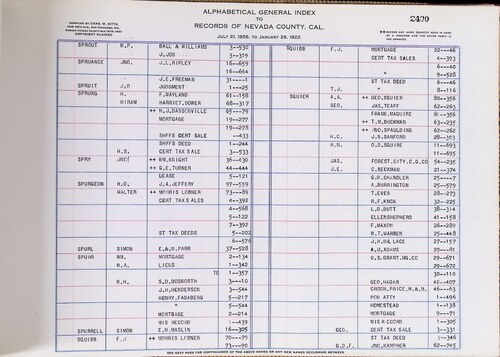 ALPHABETICAL GENERAL INDEX
TO
RECORDS OF NEVADA COUNTY, CAL
JULY 21, 1856, TO JANUARY 26, 1922
COPYRIGHT CLAIMED
SPROUT W.P. BALL & WILLIAMS 3--530
J.JDO 3--319
SPRUANCE JNO. J.L.RIPLEY 16--659
16--664
J.E.FREEMAN 31----1
SPRUIT J.D JUDGMENT 1---25
SPRUNG H. F.WAYLAND 61--158
HIRAM HARRIET.DOMER 68--317
++ H.J.DASSONVILLE 65---79
MORTGAGE 19--277
19--278
SHFFS CERT SALE --433
SHFFS DEED 1--244
H.S. CERT TAX SALE 3--533
SPRY JNO. ++ WM.KNIGHT 36--430
++ G.E.TURNER 44--444
LEASE 5--121
SPURGEON H.O. J.A.JEFFERY 97--559
WALTER ++ MORRIS LOBNER 73---89
CERT TAX SALES 4--392
4--568
5--122
7--392
ST TAX DEEDS 5--202
6--576
SPURL SIMON E.& W.PARR 37--528
SPUHR WM. MORTGAGE 2--134
W.A. LIENS 1--342
TO 1--357
W.H. S.D.BOSWORTH 3---10
J.H.HENDERSON 3--544
HENRY.FAGABERG 5--217
" 5--544
MORTGAGE 2--214
MIS RECORD 1--439
SPURRELL SIMON E.W.MASLIN 16--305
SQUIBB F.J ++ MORRIS LOBNER 70---79
73---90
SQUIBB F.J. MORTGAGE 22---46
CERT TAX SALES 4--393
6---40
" 9--528
ST TAX DEED 6---46
T.J. " 8--116
SQUIER A.A. ++ GEO.SQUIER 80--356
GEO. JAS.TEAFF 62--263
FRANK.MAGUIRE 81--356
++ T.M.BUCKMAN 63--235
++ JNO.SPAULDING 62--262
H.C. J.N.SANFORD 28--303
H.N. O.D.SQUIRE 11--693
11--695
JAS. FOREST.CITY.C.CO 54--235
J.E. C.BECKMAN 21--374
G.R.CHANDLER 25----7
A.BURRINGTON 25--579
T.EVES 28--273
R.F.KNOX 32--225
L.D.DUTT 38--314
ELLENSHEPHERD 41--158
F.MAXON 26--289
W.T.WARREN 25--448
J.H.DE LACE 27--157
A.U.ADAMS 29---81
W.S.GRANT.MG.CO 29--671
29--672
30--110
GEO.HAGAR 40--407
CROWN.PRICE.M.& M. 46---63
POW ATTY 1--496
HOMESTEAD 1--138
MORTGAGE 9---71
MIS RECORD 1--305
GEO. CERT TAX SALE 3--331
ST TAX DEED 3--346
G.D.F. JNO.KAMPHER 62--745
SEE NEXT PAGE FOR CONTINUANCE OF THE ABOVE NAMES OR ANY NEW NAMES OCCURRING BETWEEN